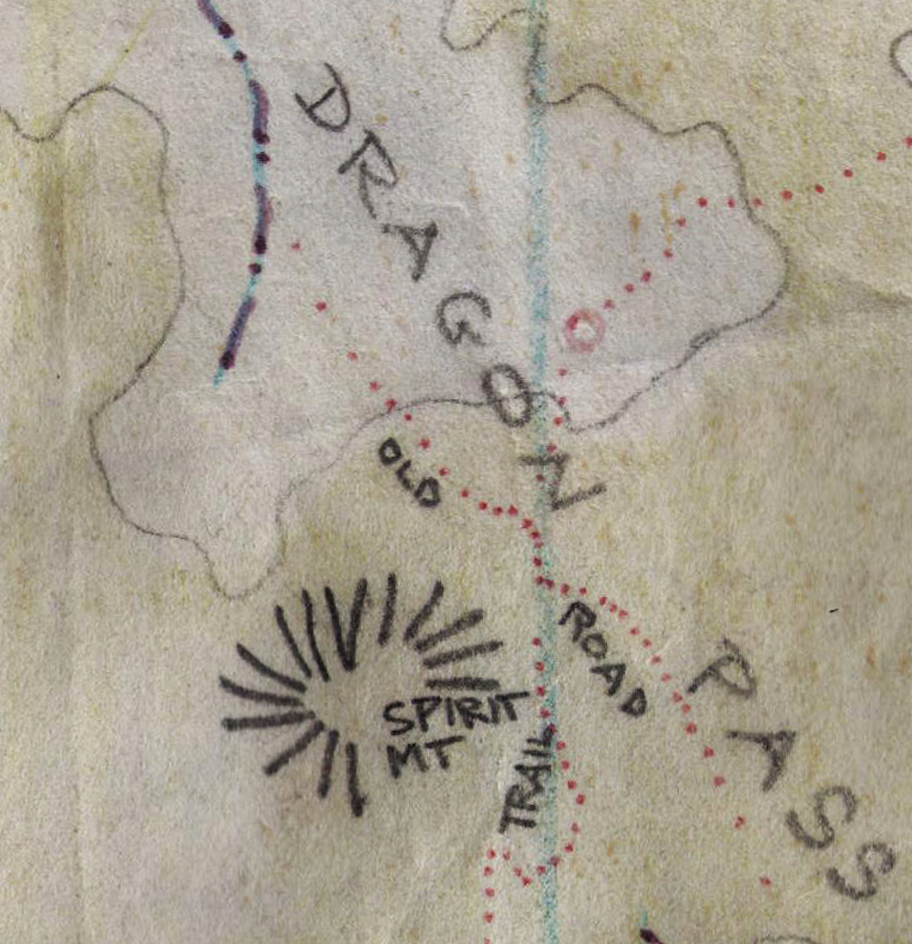 DRAGON PASS
OLD ROAD
SPIRIT
MT
TRAIL